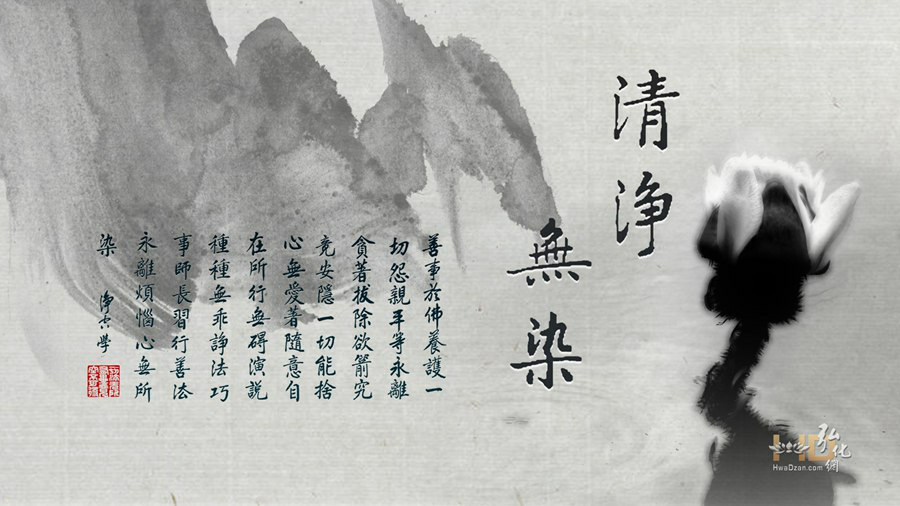 清淨
無染
善事於佛養護一
切怨親平等永離
貪著拔除欲箭究
竟安隱一切能捨
心無愛著隨意自
在所行無碍演説
種種無乖諍法巧
事師長習行善法
永離煩惱心無所
染 淨空學
HD 弘化網
HwaDzan.com